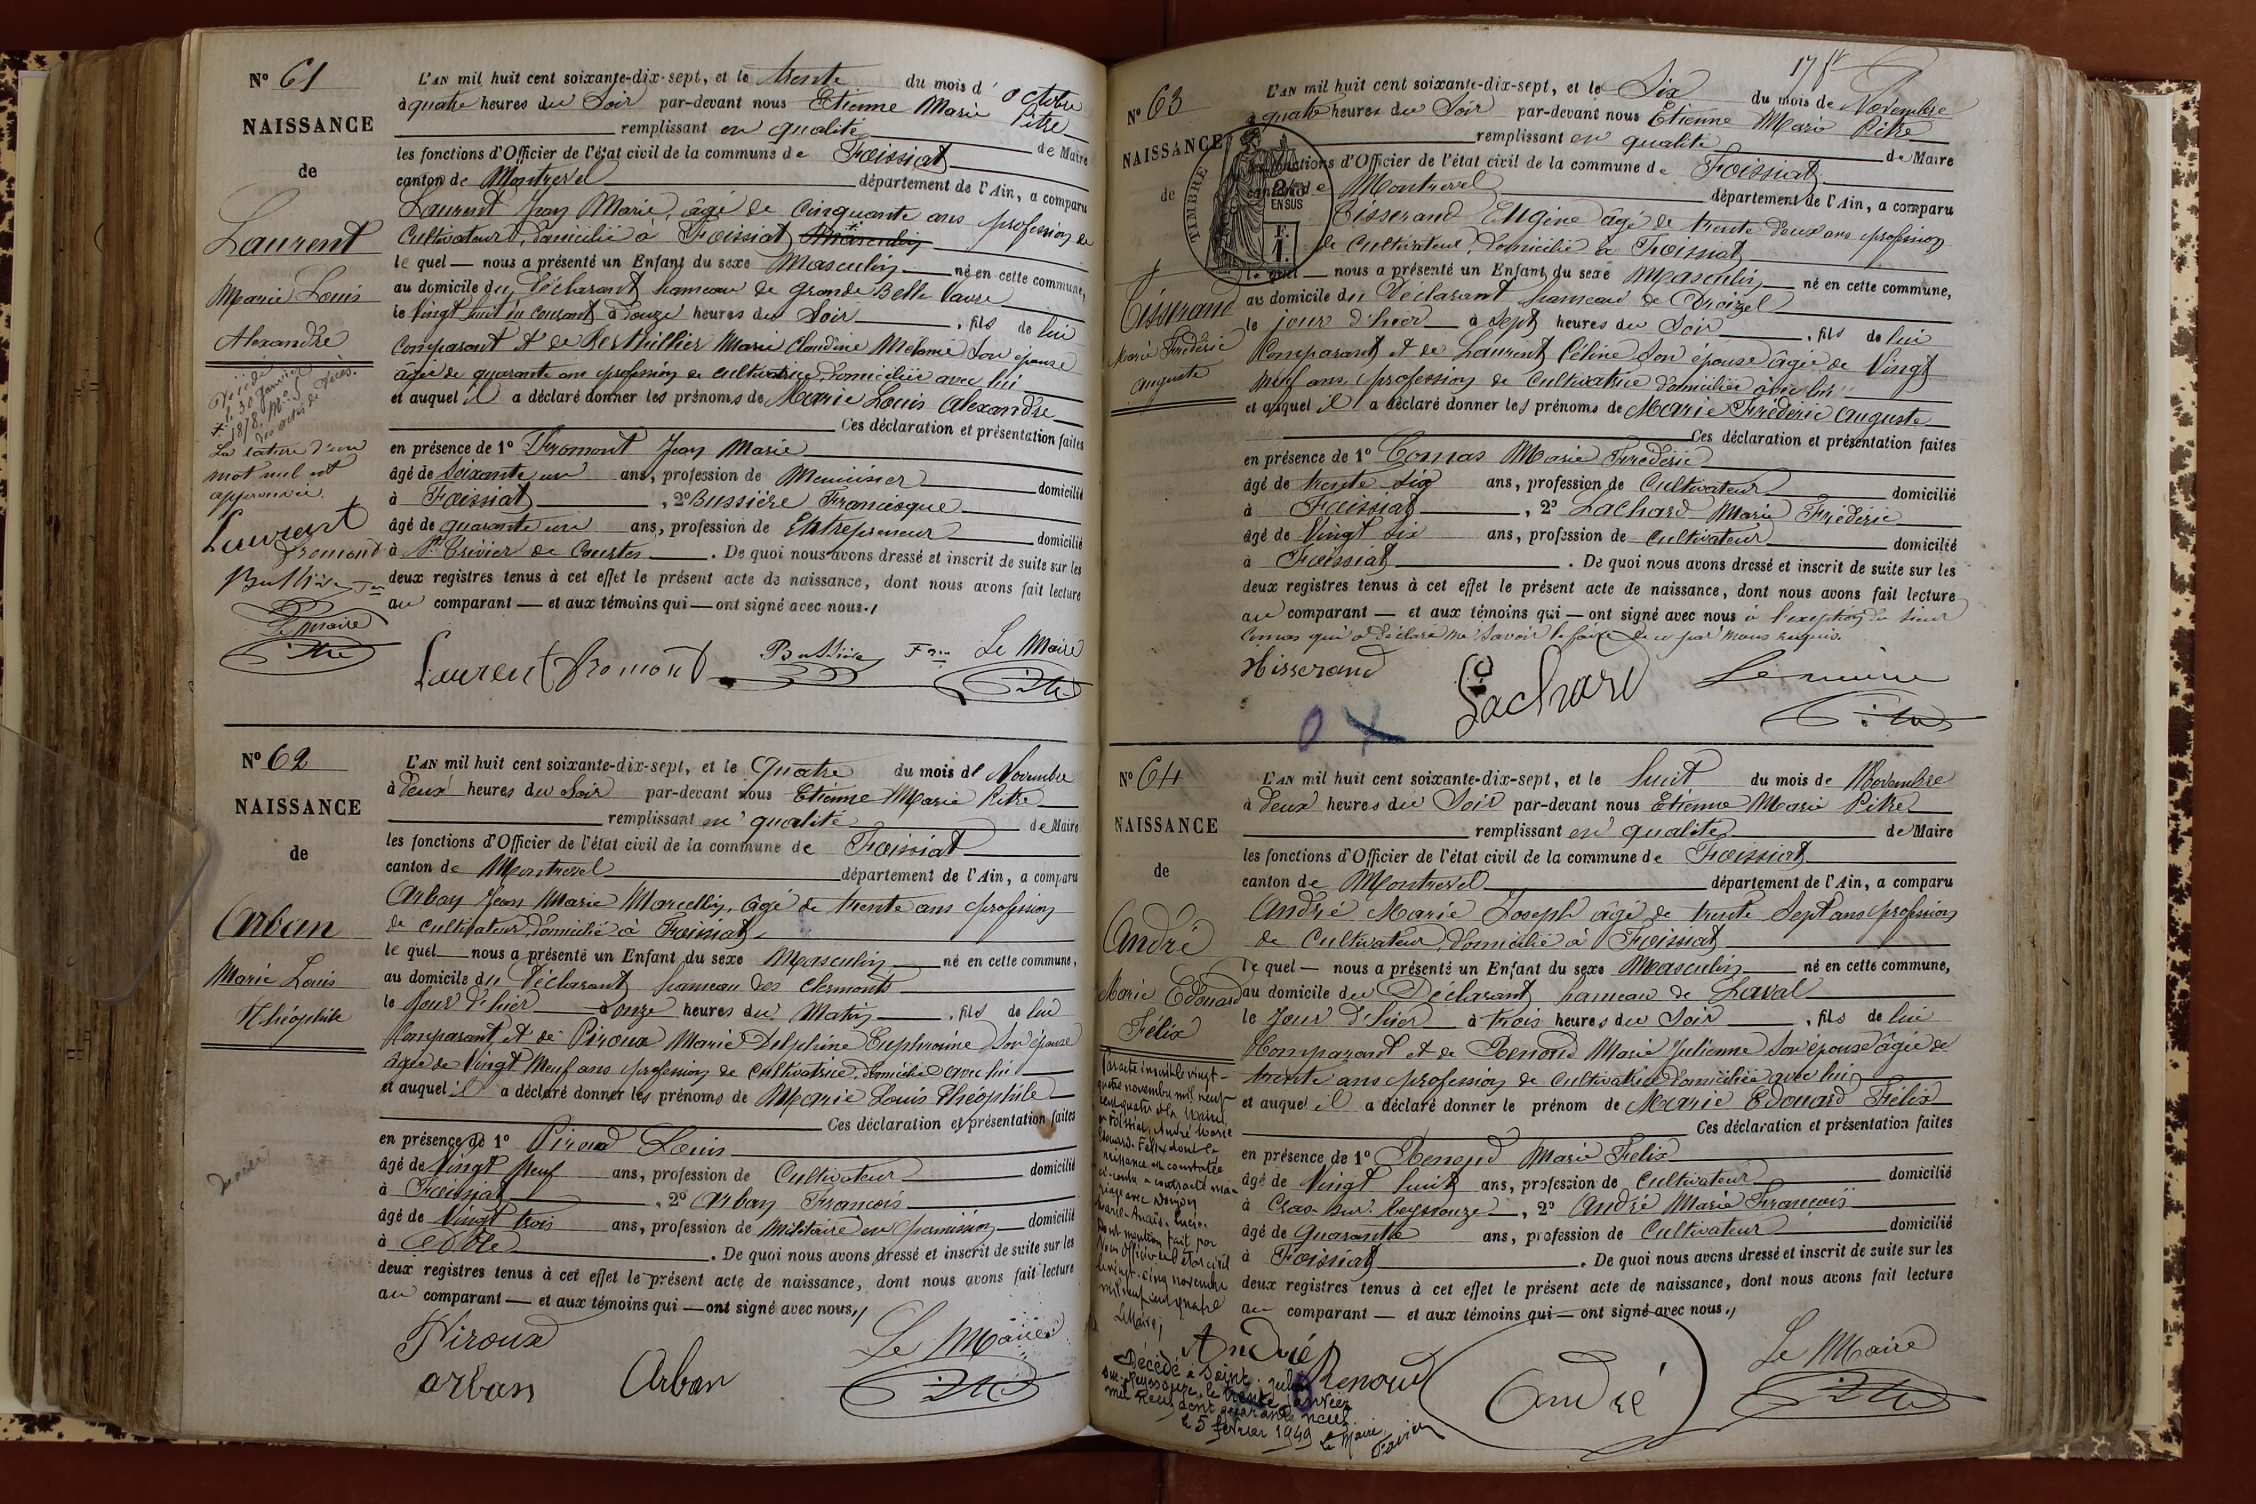 N° 61
NAISSANCE
de
Laurent
Marie Louis
Alexandre
Décédé
le 30 Janvier
1878. N° 5
des actes de Décès.
La rature d'un
mot nul est
approuvée.
Laurent
Fromont
Bussière Fque
Le Maire
Pitre
L'AN mil huit cent soixante-dix-sept, et le trente du mois d'Octobre
à quatre heures du Soir par-devant nous Etienne Marie Pitre
remplissant en qualité de Maire
les fonctions d'Officier de l'état civil de la commune de Foissiat
canton de Montrevel département de l'Ain, a comparu
Laurent Jean Marie, âgé de Cinquante ans profession de
Cultivateur, domicilié à Foissiat
le quel nous a présenté un Enfant du sexe Masculin né en cette commune,
au domicile du Déclarant hameau de Grande Belle Vavre
le Vingt huit du courant à Douze heures du Soir, fils de lui
Comparant et de Berthillier Marie Claudine Mélanie Son épouse
âgée de quarante ans profession de cultivatrice, domiciliée avec lui
et auquel il a déclaré donner les prénoms de Marie Louis Alexandre
Ces déclaration et présentation faites
en présence de 1° Fromont Jean Marie
âgé de Soixante un ans, profession de Menuisier domicilié
à Foissiat, 2° Bussière Francisque
âgé de quarante un ans, profession de Entrepreneur domicilié
à St Trivier de Courtes. De quoi nous avons dressé et inscrit de suite sur les
deux registres tenus à cet effet le présent acte de naissance, dont nous avons fait lecture
au comparant et aux témoins qui ont signé avec nous.
Laurent Fromont Bussière Fque Le Maire
Pitre
N° 62
NAISSANCE
de
Arban
Marie Louis
Théophile
L'AN mil huit cent soixante-dix-sept, et le Quatre du mois de Novembre
à Deux heures du Soir par-devant nous Etienne Marie Pitre
remplissant en qualité de Maire
les fonctions d'Officier de l'état civil de la commune de Foissiat
canton de Montrevel département de l'Ain, a comparu
Arban Jean Marie Marcellin, âgé de trente ans profession
de cultivateur domicilié à Foissiat
le quel nous a présenté un Enfant du sexe Masculin né en cette commune,
au domicile du Déclarant hameau des Clermonts
le Jour d'hier à onze heures du Matin, fils de lui
Comparant et de Piroux Marie Delphine Euphrosine Son épouse
âgée de Vingt Neuf ans profession de cultivatrice, domiciliée avec lui
et auquel il a déclaré donner les prénoms de Marie Louis Théophile
Ces déclaration et présentation faites
en présence de 1° Piroud Louis
âgé de Vingt Neuf ans, profession de Cultivateur domicilié
à Foissiat, 2° Arban François
âgé de Vingt trois ans, profession de Militaire en permission domicilié
à Dôle. De quoi nous avons dressé et inscrit de suite sur les
deux registres tenus à cet effet le présent acte de naissance, dont nous avons fait lecture
au comparant et aux témoins qui ont signé avec nous,
Piroux Le Maire
arban Arban Pitre
N° 63
NAISSANCE
de
Tisserand
Marie Frédéric
Auguste
TIMBRE
2/10es
EN SUS
L'AN mil huit cent soixante-dix-sept, et le Six du mois de Novembre
à quatre heures du Soir par-devant nous Etienne Marie Pitre
remplissant en qualité de Maire
les fonctions d'Officier de l'état civil de la commune de Foissiat
canton de Montrevel département de l'Ain, a comparu
Tisserand Eugène âgé de trente deux ans profession
de Cultivateur, domicilié à Foissiat
le quel nous a présenté un Enfant du sexe Masculin né en cette commune,
au domicile du Déclarant hameau de
le jour d'hier à Sept heures du Soir, fils de lui
Comparant et de Laurent Céline Son épouse âgée de Vingt
Neuf ans, profession de Cultivatrice domiciliée avec lui
et auquel il a déclaré donner les prénoms de Marie Frédéric Auguste
Ces déclaration et présentation faites
en présence de 1° Comas Marie Frédéric
âgé de trente Six ans, profession de Cultivateur domicilié
à Foissiat, 2° Lachard Marie Frédéric
âgé de Vingt Six ans, profession de Cultivateur domicilié
à Foissiat. De quoi nous avons dressé et inscrit de suite sur les
deux registres tenus à cet effet le présent acte de naissance, dont nous avons fait lecture
au comparant et aux témoins qui ont signé avec nous à l'exception du sieur
Comas qui a déclaré ne Savoir le faire de ce par nous requis.
Tisserand Lachard Le maire
Pitre
N° 64
NAISSANCE
de
André
Marie Edouard
Félix
Par acte inscrit le vingt-
quatre novembre mil neuf
cent quatre à la Mairie
de Foissiat, André Marie
Edouard Félix dont la
naissance est constatée
ci-contre a contracté ma-
riage avec
Marie-Anaïs-Lucie.
Dont mention fait par
Nous Officier de l'Etat civil
le vingt-cinq novembre
mil neuf cent quatre
Le Maire,
L'AN mil huit cent soixante-dix-sept, et le huit du mois de Novembre
à Deux heures du Soir par-devant nous Etienne Marie Pitre
remplissant en qualité de Maire
les fonctions d'Officier de l'état civil de la commune de Foissiat
canton de Montrevel département de l'Ain, a comparu
André Marie Joseph âgé de trente Sept ans profession
de Cultivateur, domicilié à Foissiat
le quel nous a présenté un Enfant du sexe Masculin né en cette commune,
au domicile du Déclarant hameau de Laval
le Jour d'hier à trois heures du Soir, fils de lui
Comparant et de Renoud Marie Julienne Son épouse âgée de
trente ans profession de cultivatrice domiciliée avec lui
et auquel il a déclaré donner le prénom de Marie Edouard Félix
Ces déclaration et présentation faites
en présence de 1° Renoud Marie Félix
âgé de Vingt huit ans, profession de Cultivateur domicilié
à Cras-sur-Reyssouze, 2° André Marie François
âgé de Quarante ans, profession de Cultivateur domicilié
à Foissiat. De quoi nous avons dressé et inscrit de suite sur les
deux registres tenus à cet effet le présent acte de naissance, dont nous avons fait lecture
au comparant et aux témoins qui ont signé avec nous,
André Renoud André Le Maire
Pitre
Décédé à Saint-Julien
sur-Reyssouze, le trente janvier
mil neuf cent quarante neuf.
le 5 février 1949 Le Maire,